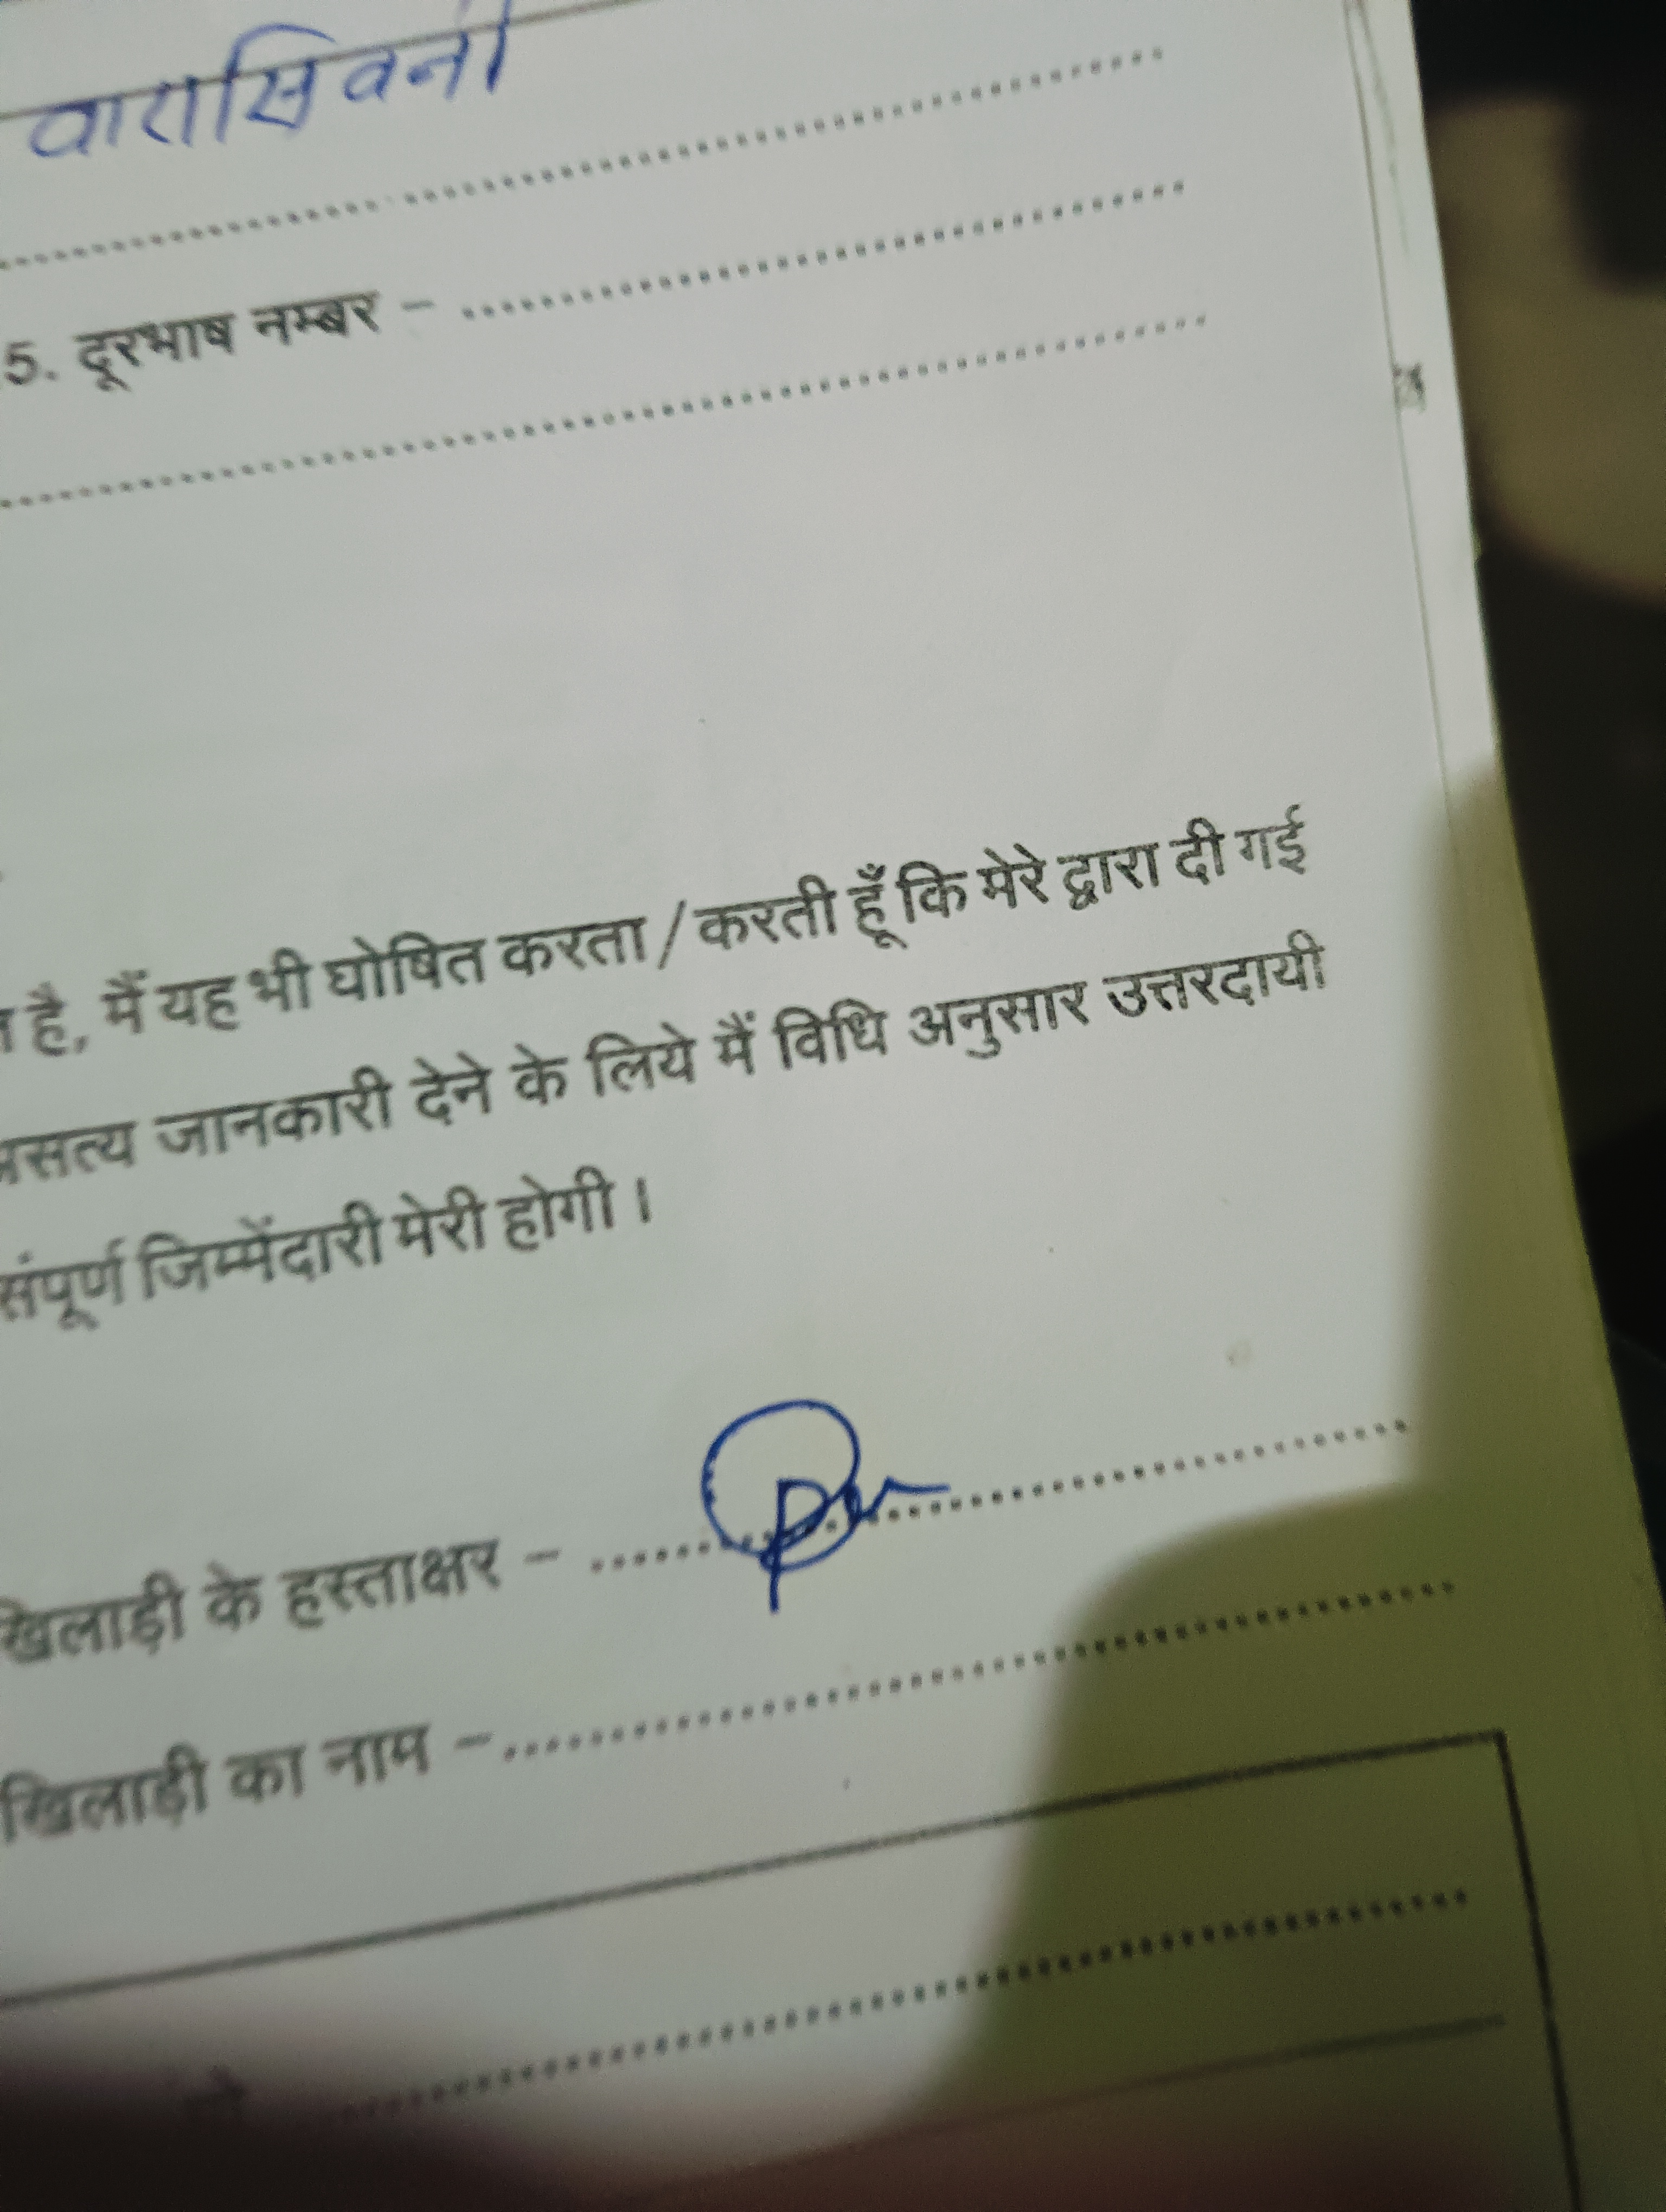 वारासिवनी
5. दूरभाष नम्बर –
है, मैं यह भी घोषित करता / करती हूँ कि मेरे द्वारा दी गई
जानकारी देने के लिये मैं विधि अनुसार उत्तरदायी
संपूर्ण जिम्मेंदारी मेरी होगी ।
खिलाड़ी के हस्ताक्षर –
खिलाड़ी का नाम –